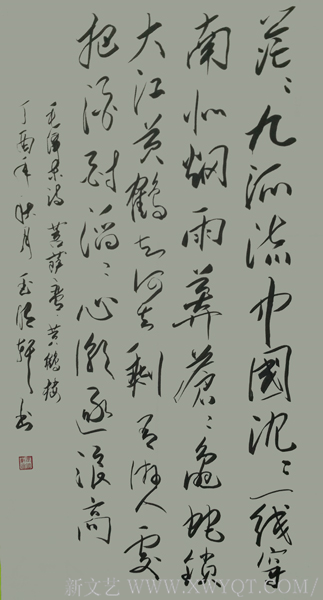 茫〻九派流中國沈〻一线穿
南北烟雨莽蒼〻龜蛇鎖
大江黄鹤知何去剩有游人處
把酒酹滔〻心潮逐浪高
毛泽东诗菩萨蛮黄鹤楼
丁酉年秋月 书
新文艺 WWW.XWYQT.COM